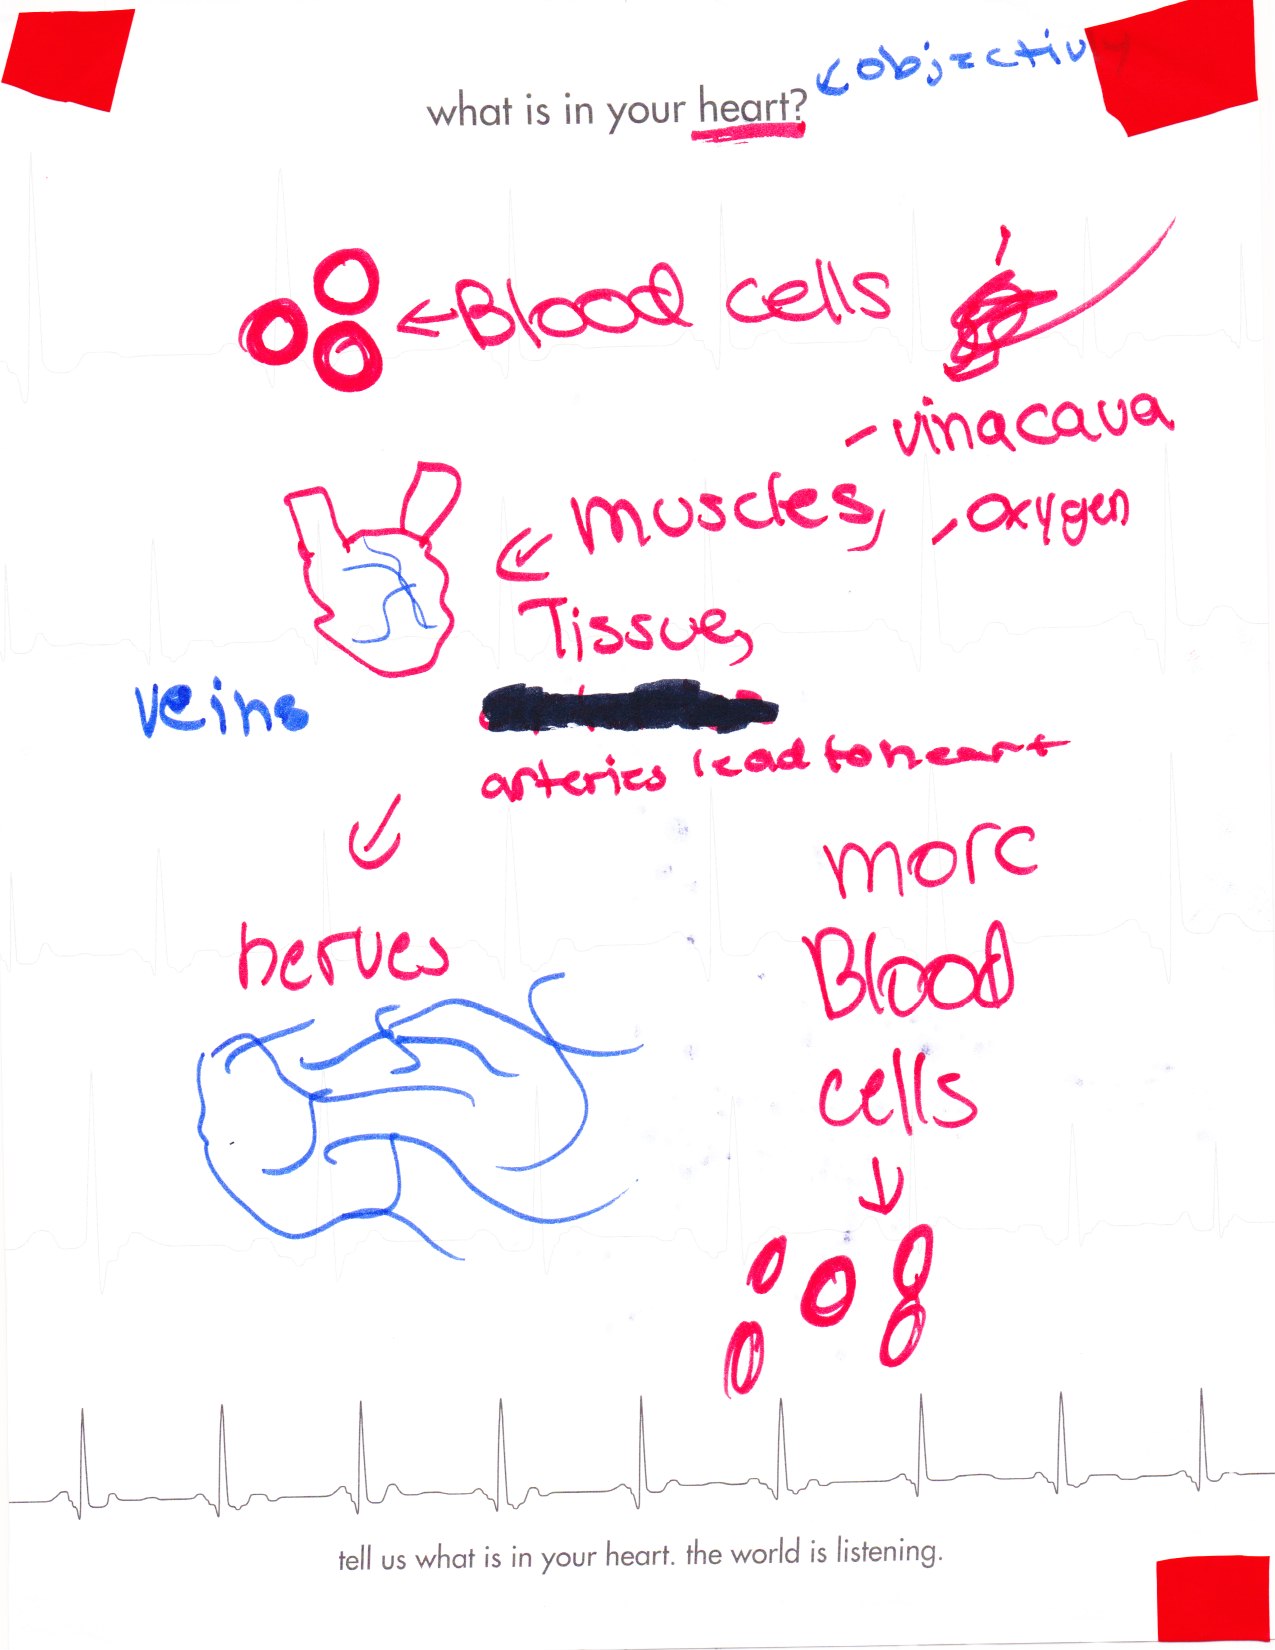 objectiv
what is in your heart?
Blood cells
- vinacava
muscles, , oxygen
Tissue,
veins
arteries lead to heart
nerves
more
Blood
cells
tell us what is in your heart. the world is listening.